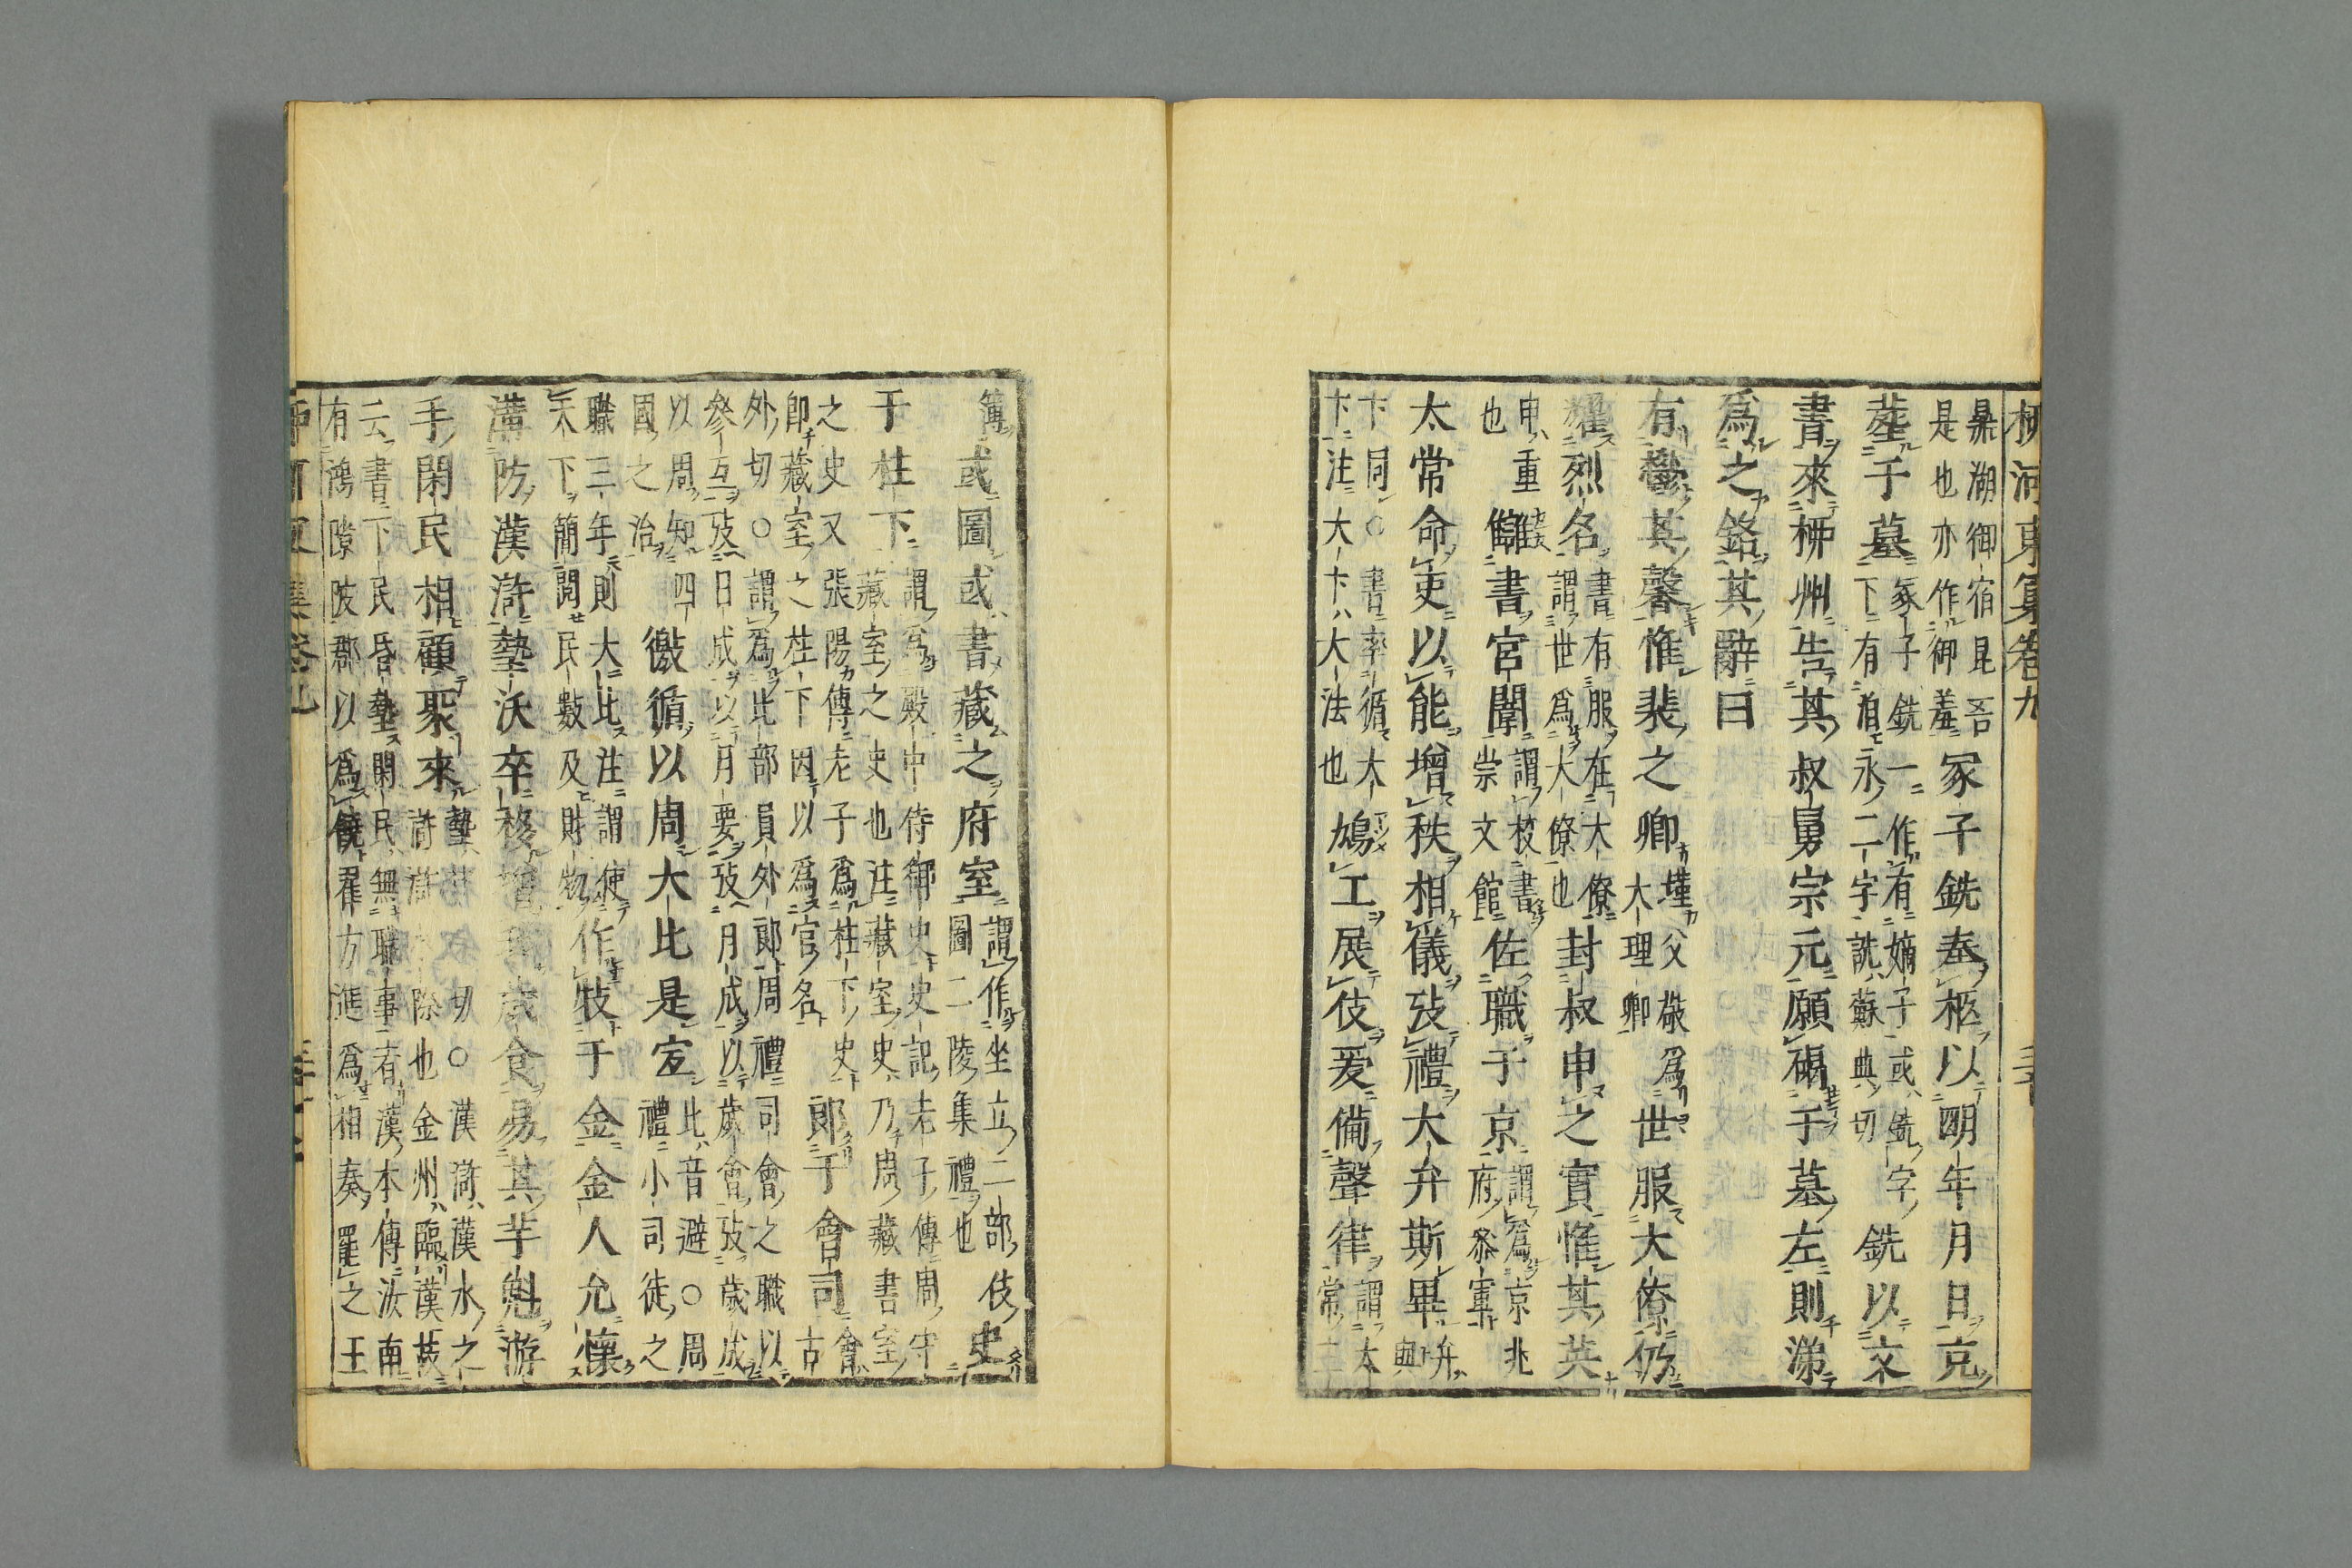 柳河東集卷九
暴湖御宿昆吾
是也亦作御羞
冢子銑奉柩以明年月日克
葬于墓
冢子銑一作有嫡子或銑字
下有有永二字詵蘇典切
銑以文
書來柳州告其叔舅宗元願碣于墓左則涕
爲之銘其辭曰
有鬱其馨惟裴之卿
墐父敬爲
大理卿
世服大僚仍
耀烈名
書有服在大僚
謂世爲大僚也
封叔申之實惟其英
申重
也
讎書宮闈
謂校書
崇文館
佐職于京
謂爲京兆
府參軍
太常命吏以能增秩相儀攷禮大弁斯畢
弁
與
卞同○書率循大
卞注大卞大法也
鳩工展伎爰備聲律
謂太
常
簿或圖或書藏之府室
謂作坐立二部伎
圖二陵集禮也
史
于柱下
謂爲殿中侍御史史記老子傳周守
藏室之史也注藏室史乃周藏書室
之史又張陽傳老子爲柱下史
卽藏室之柱下因以爲官名
郎于會司
會古
外切○謂爲比部員外郎周禮司會之職以
參互攷日成以月要攷月成以歲會攷歲成
以周知四
國之治
徼循以周大比是宐
比音避○周
禮小司徒之
職三年則大比注謂使
天下簡閱民數及財物
作牧于金金人允懷
溝防漢滸墊沃卒移
食易其芋魁游
手閑民相顧聚來
墊
切○漢滸漢水之
滸
除也金州臨漢故
云書下民昏墊閑民無職事者漢本傳汝南
有鴻隙陂郡以爲饒翟方進爲相奏罷之王